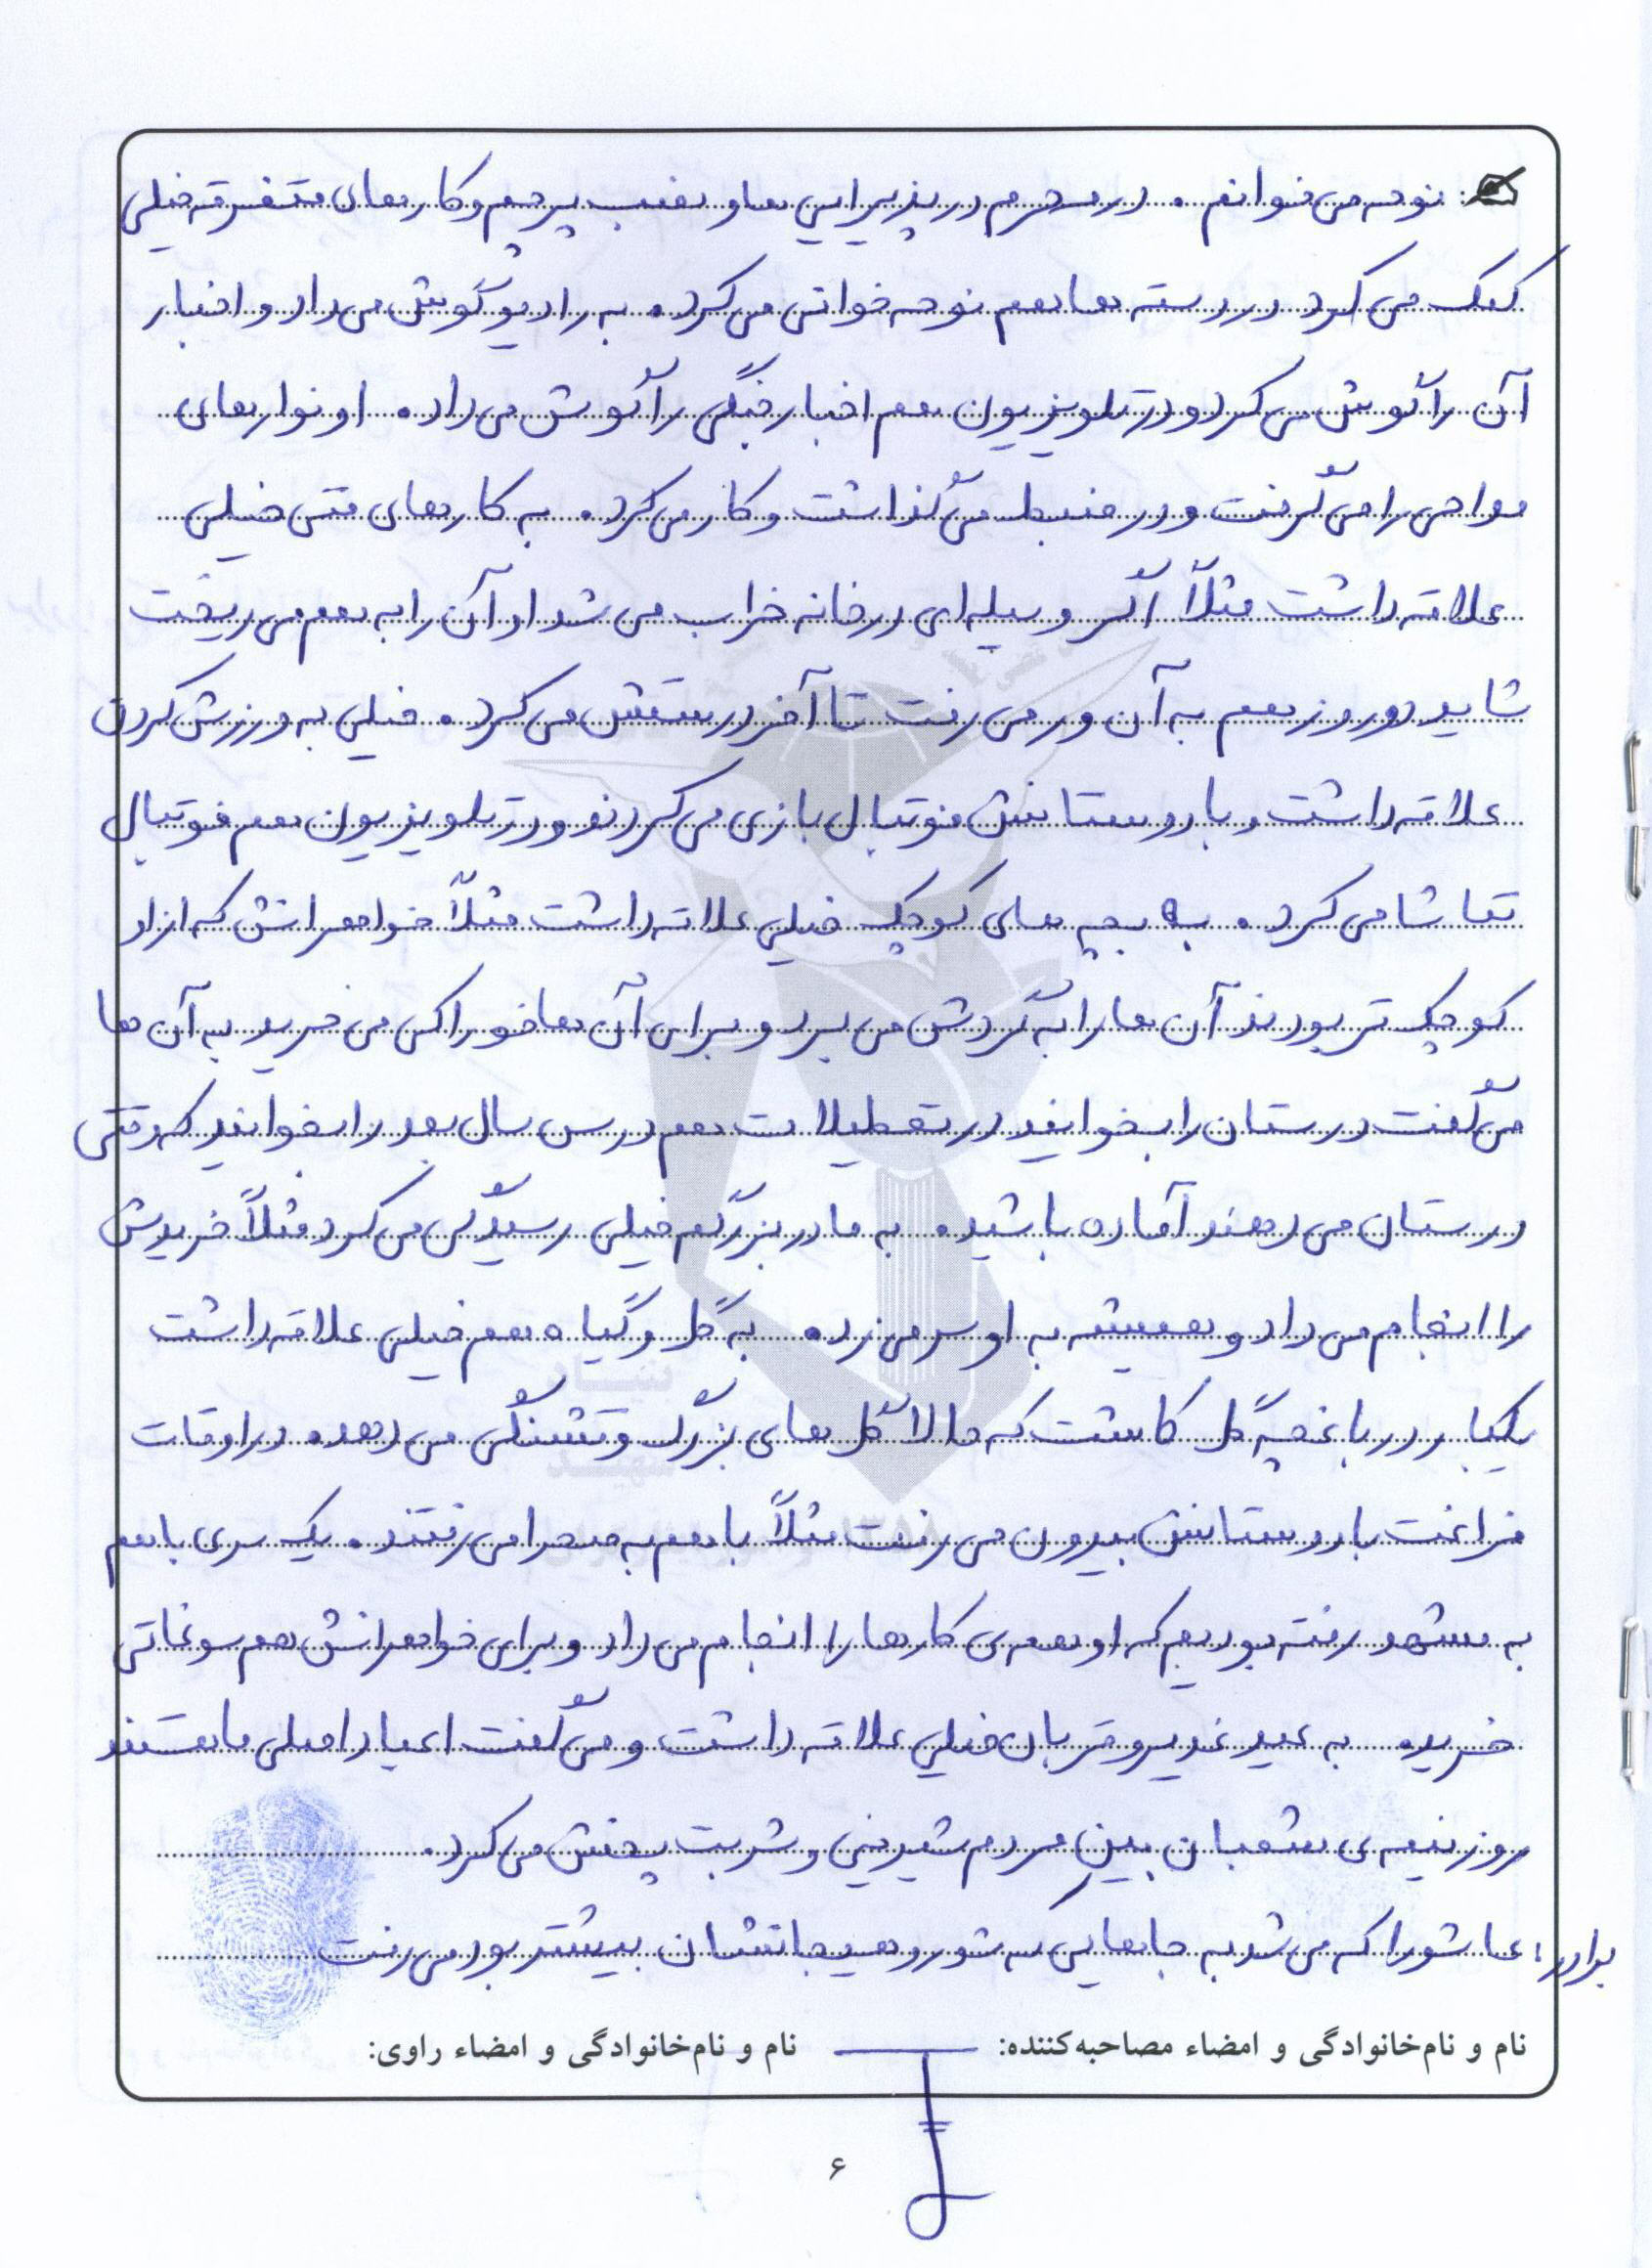 نوحه می خوانم. در محرم در پذیرایی ها و نصب پرچم و کارهای متفرقه خیلی
کمک می کرد در دسته ها هم نوحه خوانی می کرد. به رادیو گوش می داد و اخبار
آن را گوش می کرد و در تلویزیون هم اخبار جنگی را گوش می داد. او نوارهای
مداحی را می گرفت و در ضبط می گذاشت و کار می کرد. به کارهای فنی خیلی
علاقه داشت مثلاً اگر وسیله ای در خانه خراب می شد او آن را به هم می ریخت
شاید دو روز هم به آن ور می رفت تا آخر درستش می کرد. خیلی به ورزش کردن
علاقه داشت و با دوستانش فوتبال بازی می کردند و در تلویزیون هم فوتبال
تماشا می کرد. به بچه های کوچک خیلی علاقه داشت مثلاً خواهرانش که از او
کوچک تر بودند آن ها را به گردش می برد و برای آن ها خوراکی می خرید به آن ها
می گفت درستان را بخوانید در تعطیلات هم درس سال بعد را بخوانید که وقتی
درستان می دهند آماده باشید. به مادربزرگم خیلی رسیدگی می کرد مثلاً خریدش
را انجام می داد و همیشه به او سر می زد. به گل و گیاه هم خیلی علاقه داشت
یکبار در باغچه گل کاشت که حالا گل های بزرگ و قشنگی می دهد. در اوقات
فراغت با دوستانش بیرون می رفت مثلاً با هم به صحرا می رفتند. یک سری با هم
به مشهد رفته بودیم که او همه ی کارها را انجام می داد و برای خواهرانش هم سوغاتی
خرید. به عید غدیر و قربان خیلی علاقه داشت و می گفت اعیاد اصلی ما هستند
روز نیمه ی شعبان بین مردم شیرینی و شربت پخش می کرد.
برادر: عاشورا که می شد به جاهایی که شور و هیجانشان بیشتر بود می رفت
نام و نام‌خانوادگی و امضاء مصاحبه‌کننده: نام و نام‌خانوادگی و امضاء راوی:
۶